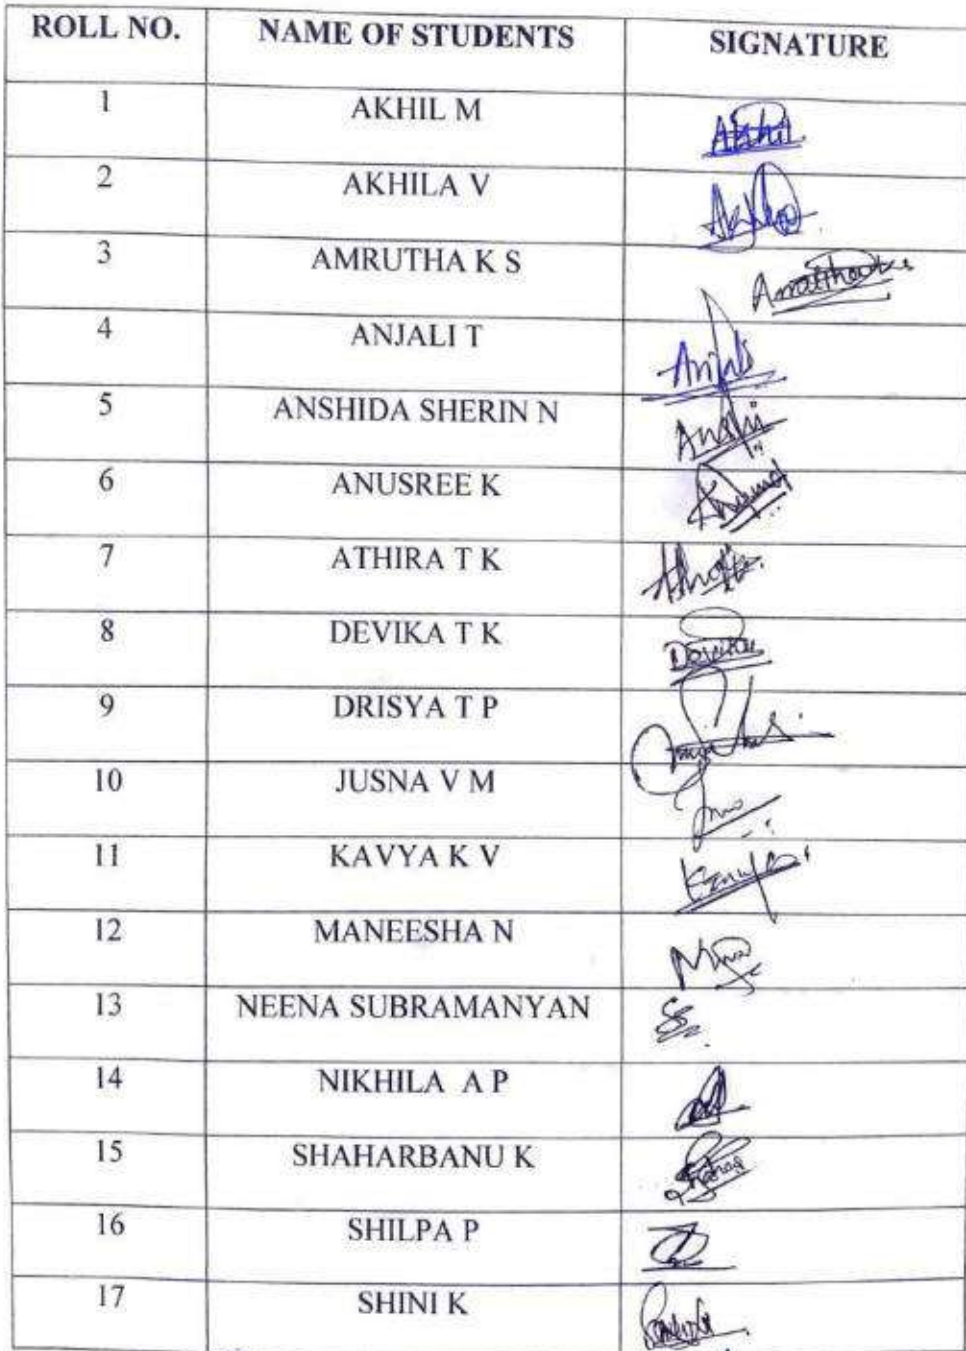 ROLL NO. NAME OF STUDENTS SIGNATURE
1 AKHIL M Akhil
2 AKHILA V
3 AMRUTHA K S
4 ANJALI T Anjali
5 ANSHIDA SHERIN N Anshi
6 ANUSREE K
7 ATHIRA T K
8 DEVIKA T K Devika
9 DRISYA T P
10 JUSNA V M
11 KAVYA K V
12 MANEESHA N
13 NEENA SUBRAMANYAN
14 NIKHILA A P
15 SHAHARBANU K
16 SHILPA P
17 SHINI K